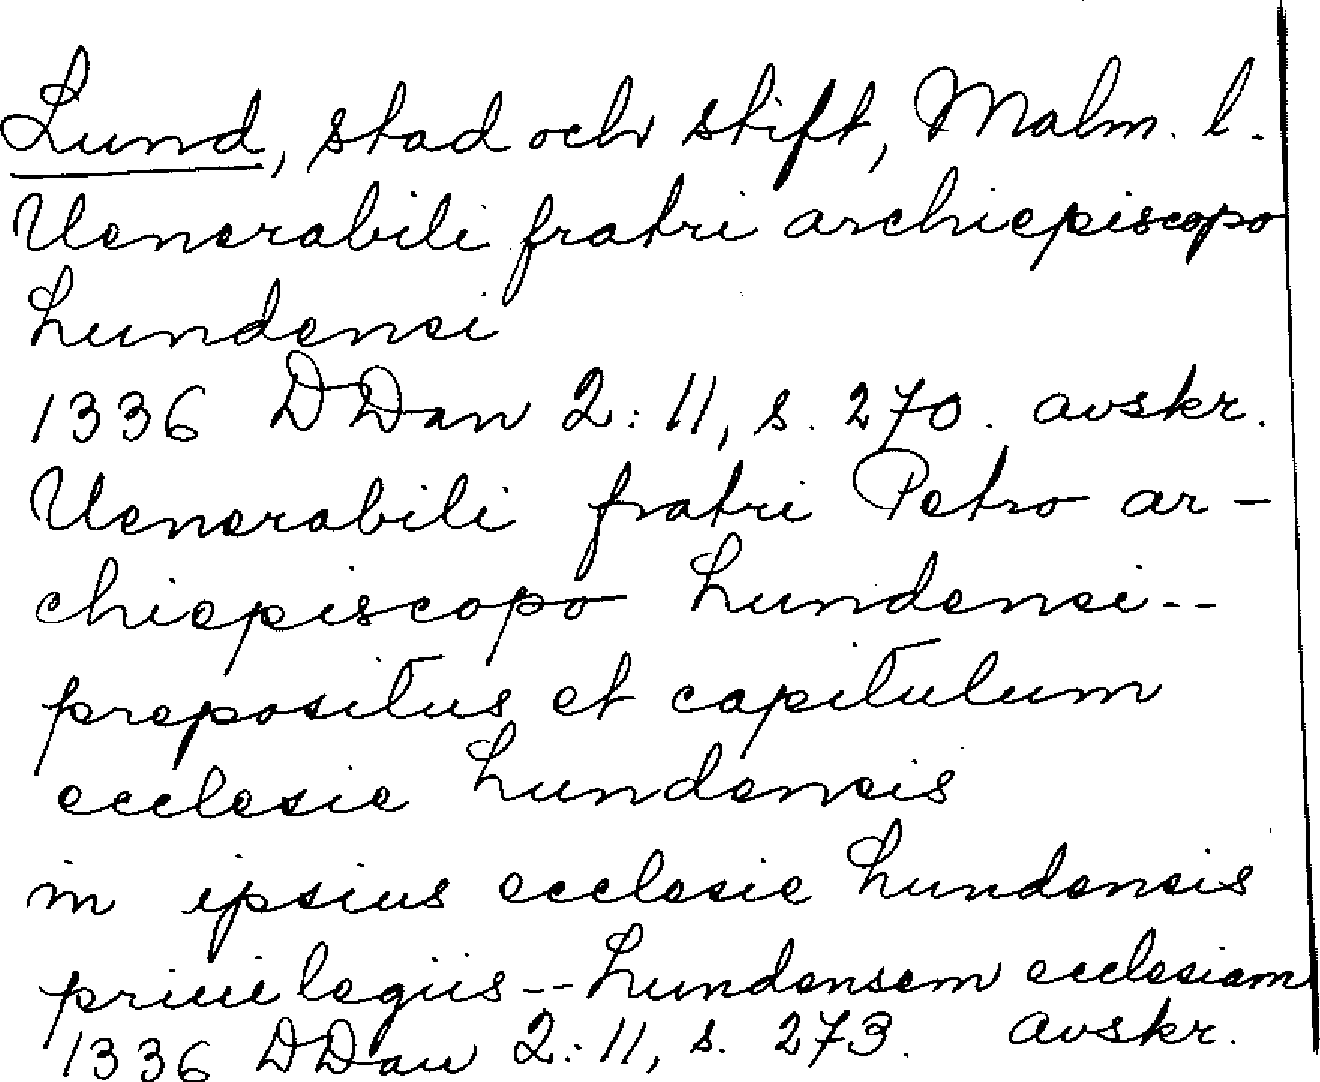 Lund, stad och stift, Malm. l.
Uenerabili fratri archiepiscopo
Lundensi
1336 DDan 2:11, s. 270. avskr.
Uenerabili fratri Petro ar-
chiepiscopo Lundensi--
prepositus et capitulum
ecclesie Lundensis
in ipsius ecclesie Lundensis
priuilegiis--Lundensem ecclesiam
1336 DDan 2:11, s. 273. avskr.